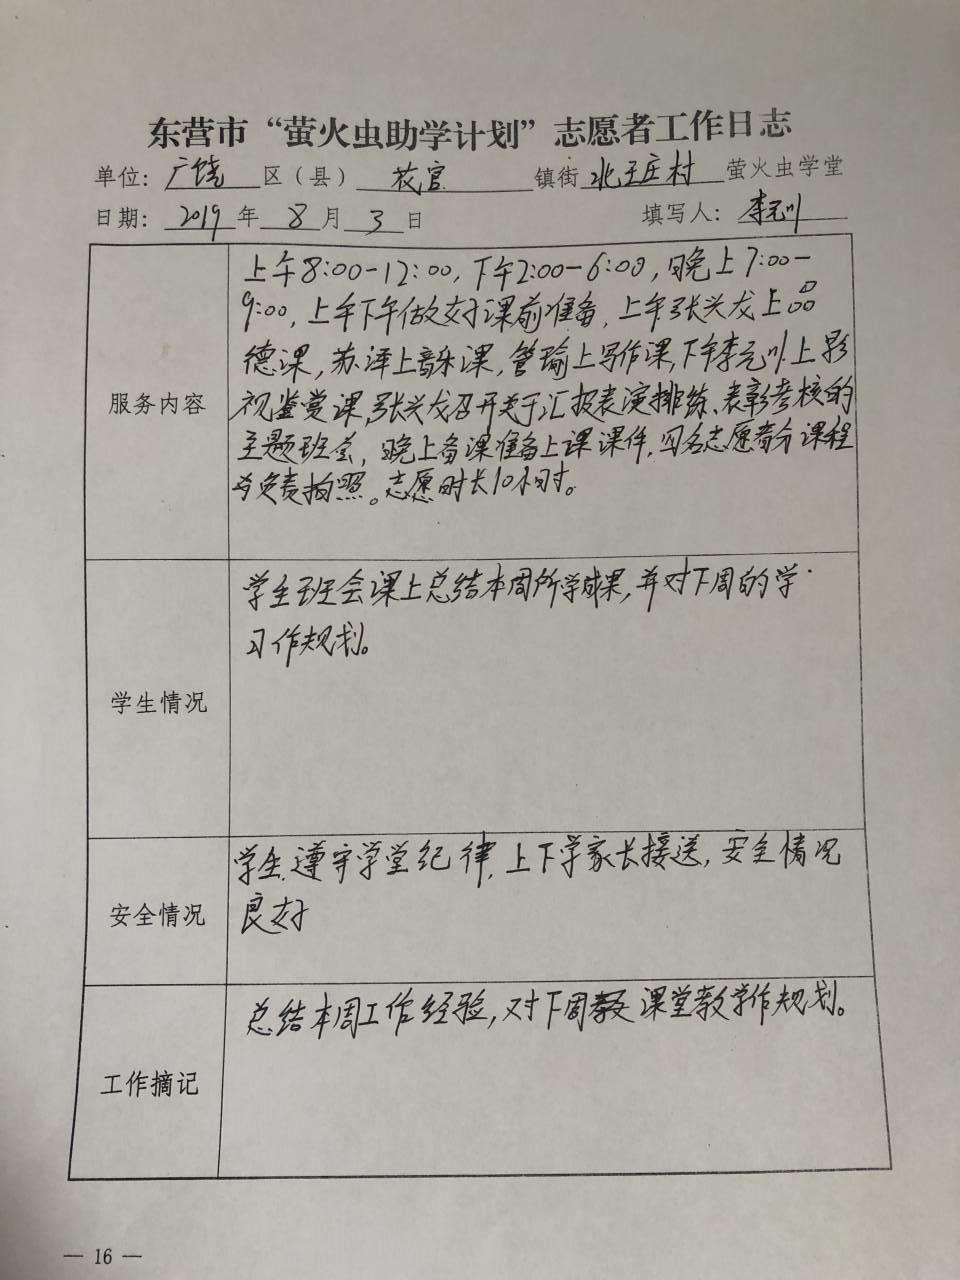 东营市“萤火虫助学计划”志愿者工作日志
单位：广饶区（县）花官镇街北王庄村萤火虫学堂
日期：2019年8月3日 填写人：李元川
上午8:00-12:00，下午2:00-6:00，晚上7:00-
9:00，上午下午做好课前准备，上午张兴龙上品
德课，苏泽上音乐课，管瑜上写作课，下午李元川上影
服务内容 视鉴赏课，张兴龙召开关于汇报表演排练、表彰考核的
主题班会，晚上备课准备上课课件，四名志愿者分课程
与负责拍照。志愿时长10小时。
学生班会课上总结本周所学成果，并对下周的学
习作规划。
学生情况
学生遵守学堂纪律，上下学家长接送，安全情况
安全情况 良好
总结本周工作经验，对下周课堂教学作规划。
工作摘记
— 16 —